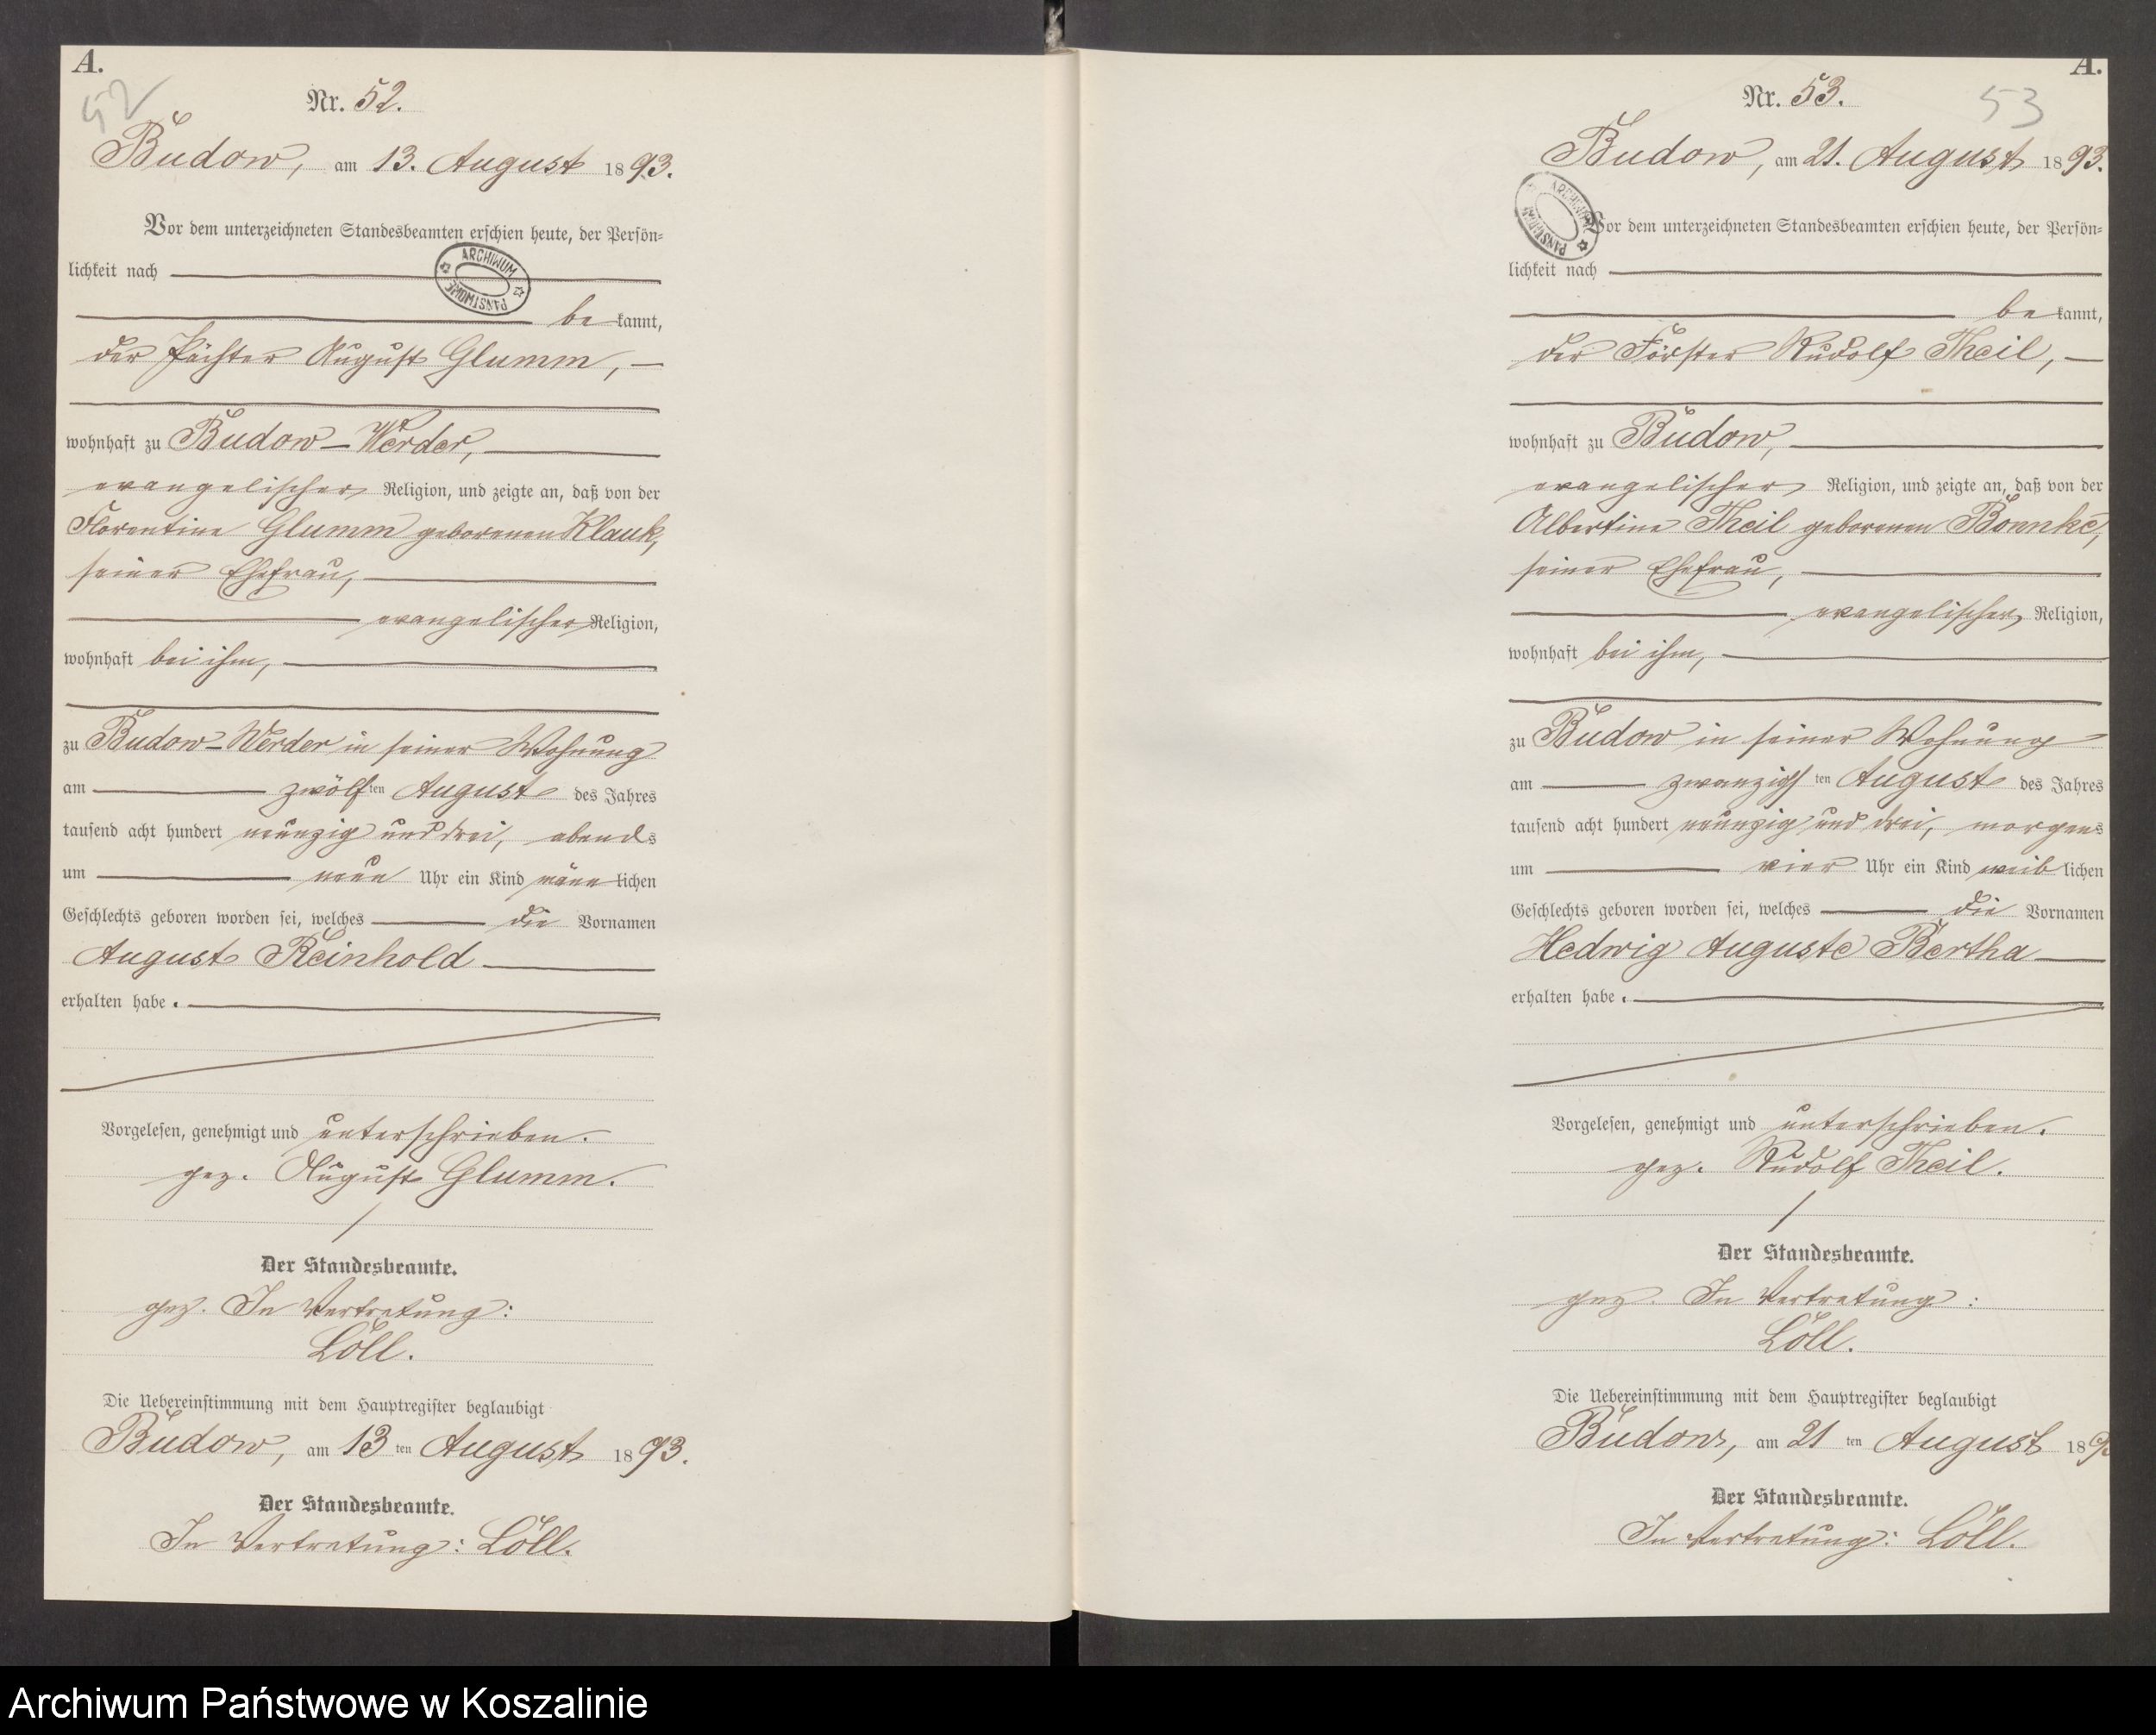 A.
52
Nr. 52.
Budow, am 13. August 1893.
Vor dem unterzeichneten Standesbeamten erschien heute, der Persön-
lichkeit nach
ARCHIWUM PAŃSTWOWE
be kannt,
der Pächter August Glumm,
wohnhaft zu Budow-Werder,
evangelischer Religion, und zeigte an, daß von der
Florentine Glumm geborenen Klauk,
seiner Ehefrau,
evangelischer Religion,
wohnhaft bei ihm,
zu Budow-Werder in seiner Wohnung
am zwölf ten August des Jahres
tausend acht hundert neunzig und drei, abends
um neun Uhr ein Kind männ lichen
Geschlechts geboren worden sei, welches die Vornamen
August Reinhold
erhalten habe.
Vorgelesen, genehmigt und unterschrieben.
gez. August Glumm.
Der Standesbeamte.
gez. In Vertretung:
Löll.
Die Uebereinstimmung mit dem Hauptregister beglaubigt
Budow, am 13 ten August 1893.
Der Standesbeamte.
In Vertretung: Löll.
A.
53
Nr. 53.
Budow, am 21. August 1893.
ARCHIWUM PAŃSTWOWE
Vor dem unterzeichneten Standesbeamten erschien heute, der Persön-
lichkeit nach
be kannt,
der Förster Rudolf Theil,
wohnhaft zu Budow,
evangelischer Religion, und zeigte an, daß von der
Albertine Theil geborenen Bonnke,
seiner Ehefrau,
evangelischer Religion,
wohnhaft bei ihm,
zu Budow in seiner Wohnung
am zwanzigs ten August des Jahres
tausend acht hundert neunzig und drei, morgens
um vier Uhr ein Kind weib lichen
Geschlechts geboren worden sei, welches die Vornamen
Hedwig Auguste Bertha
erhalten habe.
Vorgelesen, genehmigt und unterschrieben.
gez. Rudolf Theil.
Der Standesbeamte.
gez. In Vertretung:
Löll.
Die Uebereinstimmung mit dem Hauptregister beglaubigt
Budow, am 21 ten August 189
Der Standesbeamte.
In Vertretung: Löll.
Archiwum Państwowe w Koszalinie